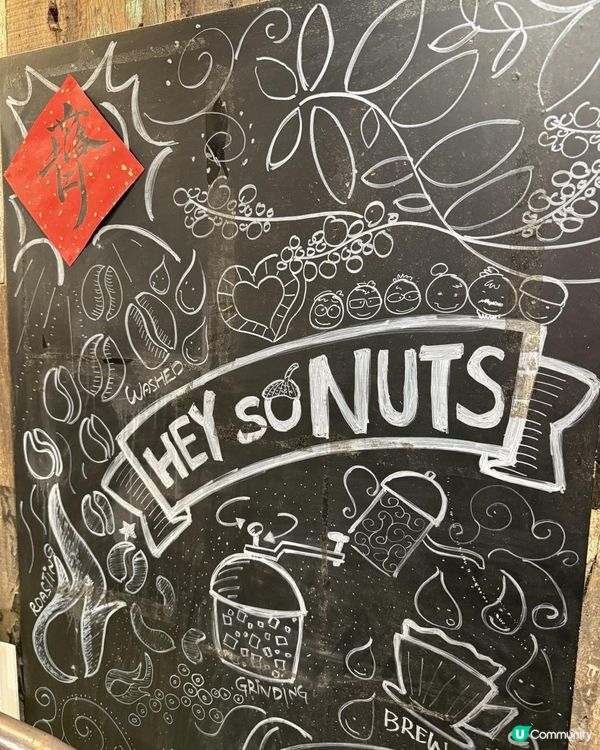 WASHED
HEY SO NUTS
ROASTING
GRINDING
BREW
U Community